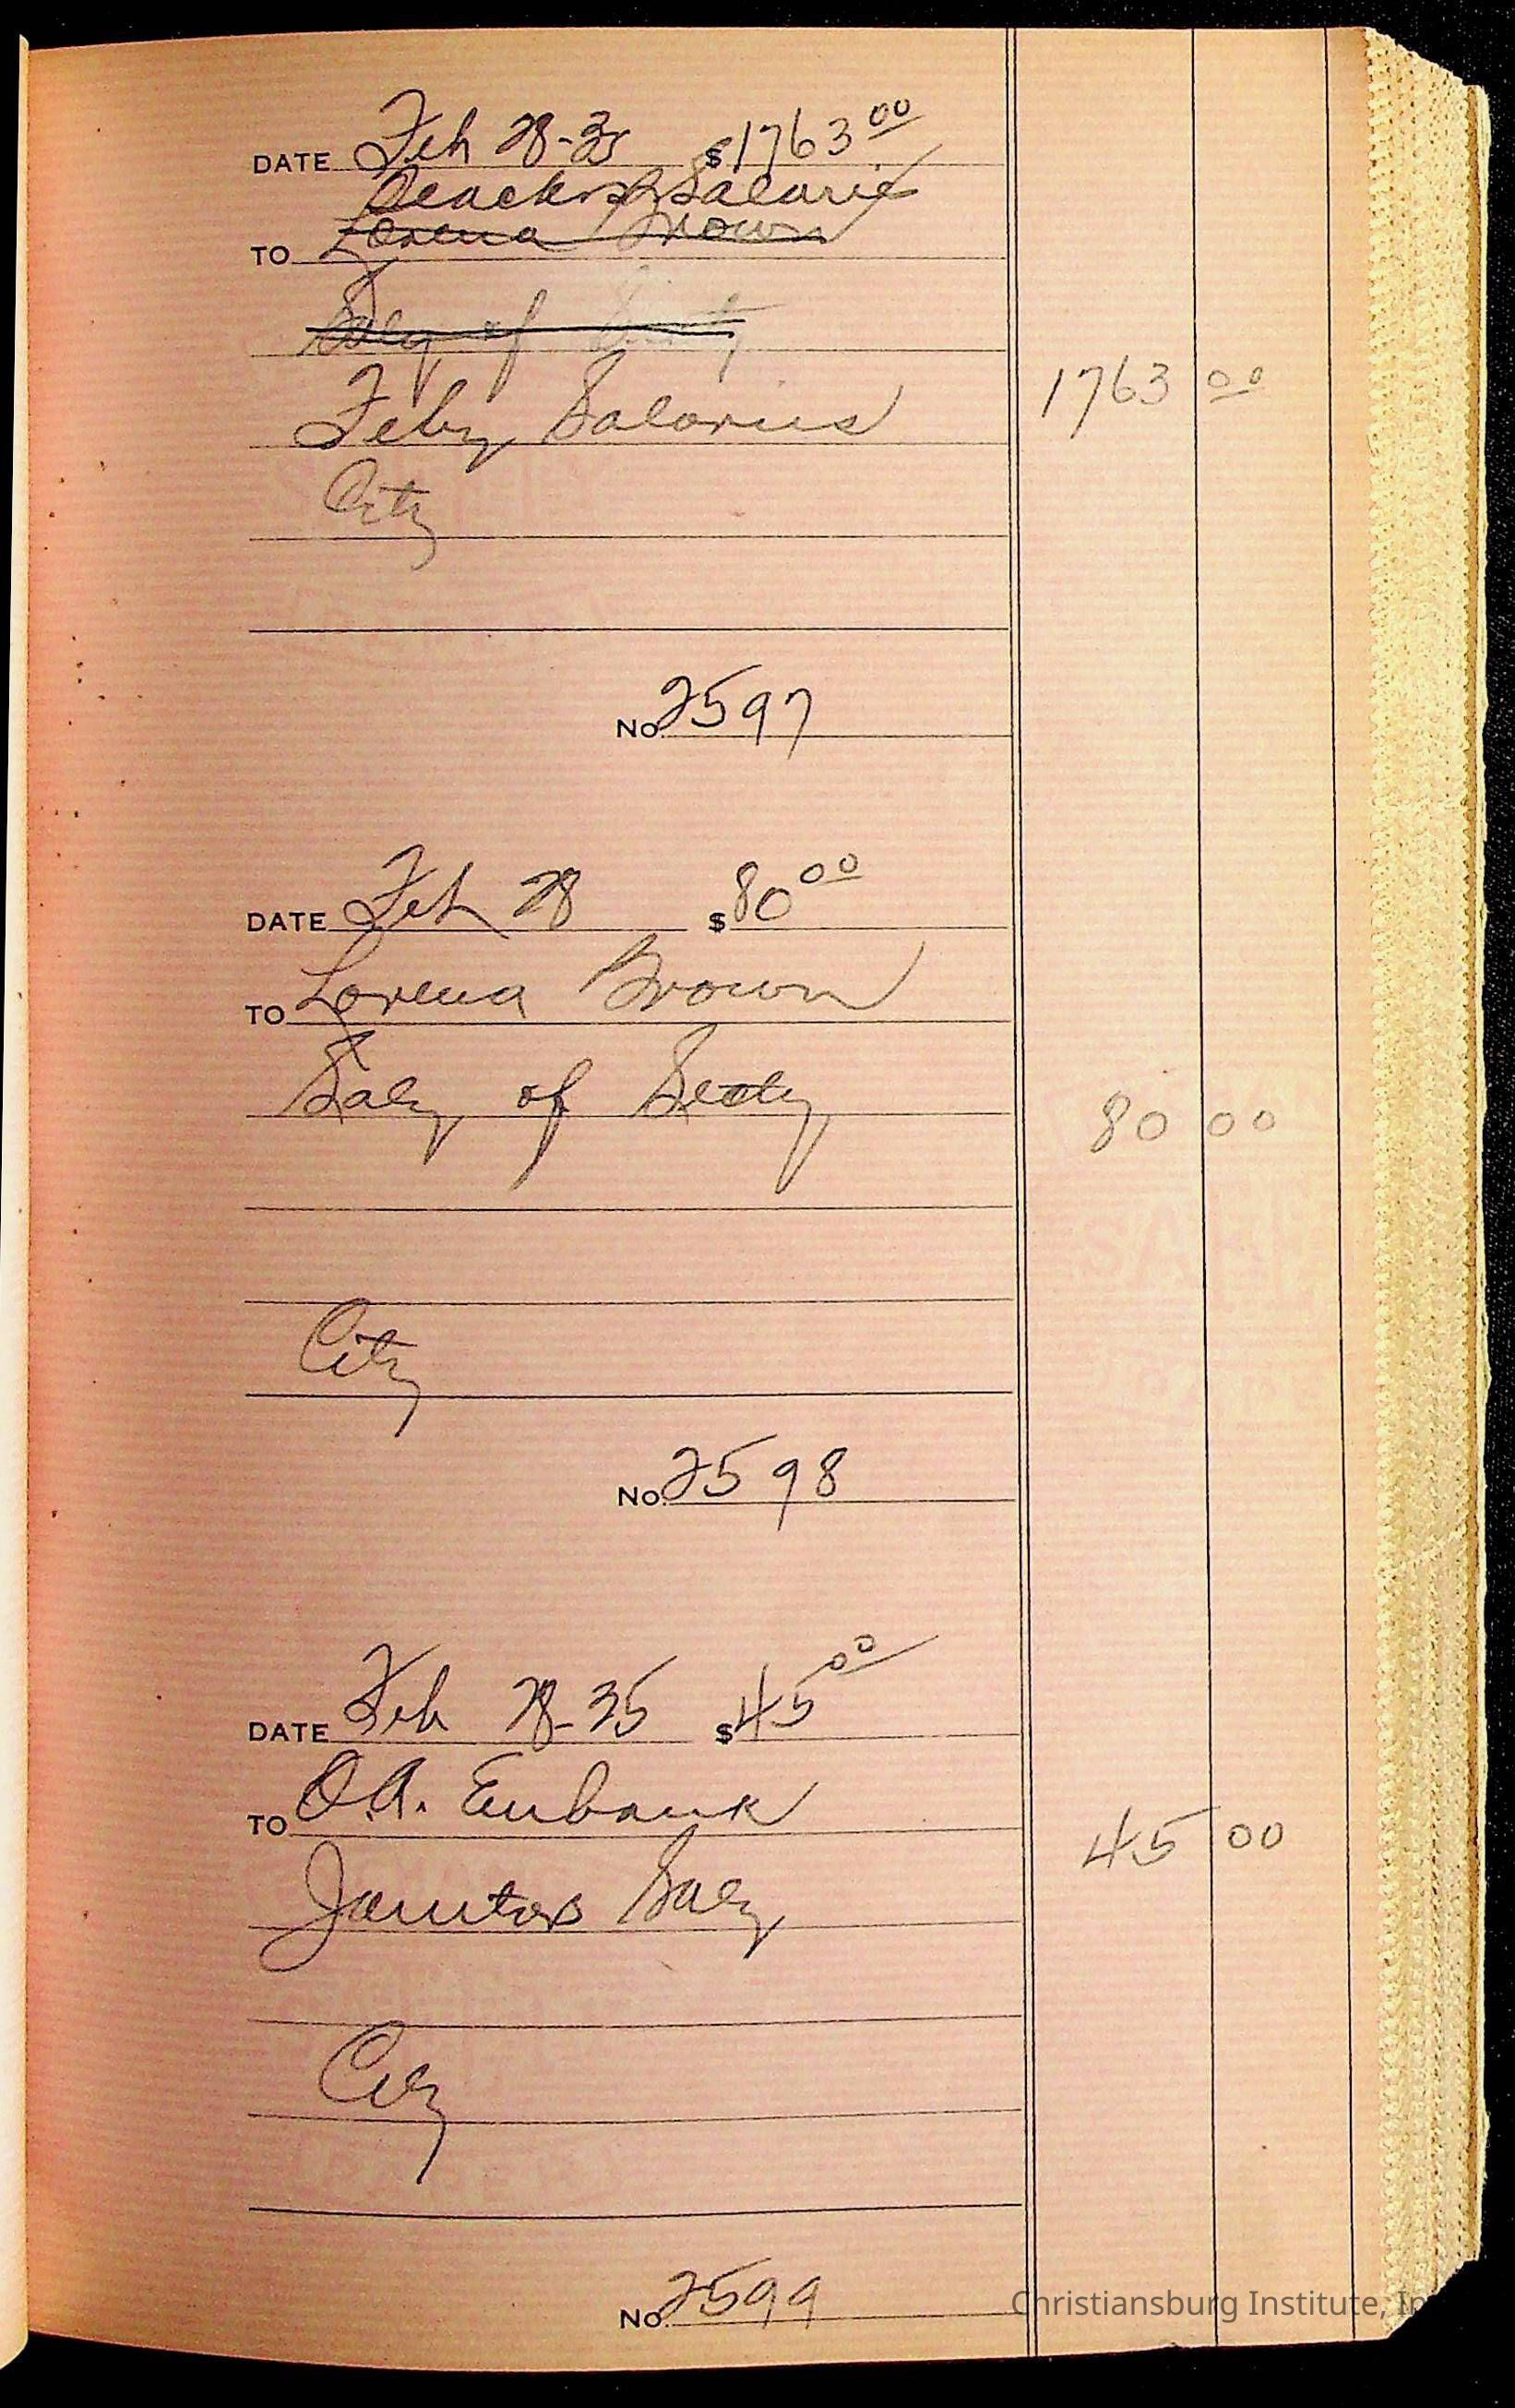 DATE Feb 28-35 $1763 00
Teachers Salarie
TO Lorena Brown
Saly of
Feby Salaries 1763 00
City
No. 2597
DATE Feb 28 $80 00
TO Lorena Brown
Saly of Secty 80 00
City
No. 2598
DATE Feb 28-35 $45 00
TO O.A. Eubank 45 00
Janitors Saly
City
No. 2599
Christiansburg Institute, In